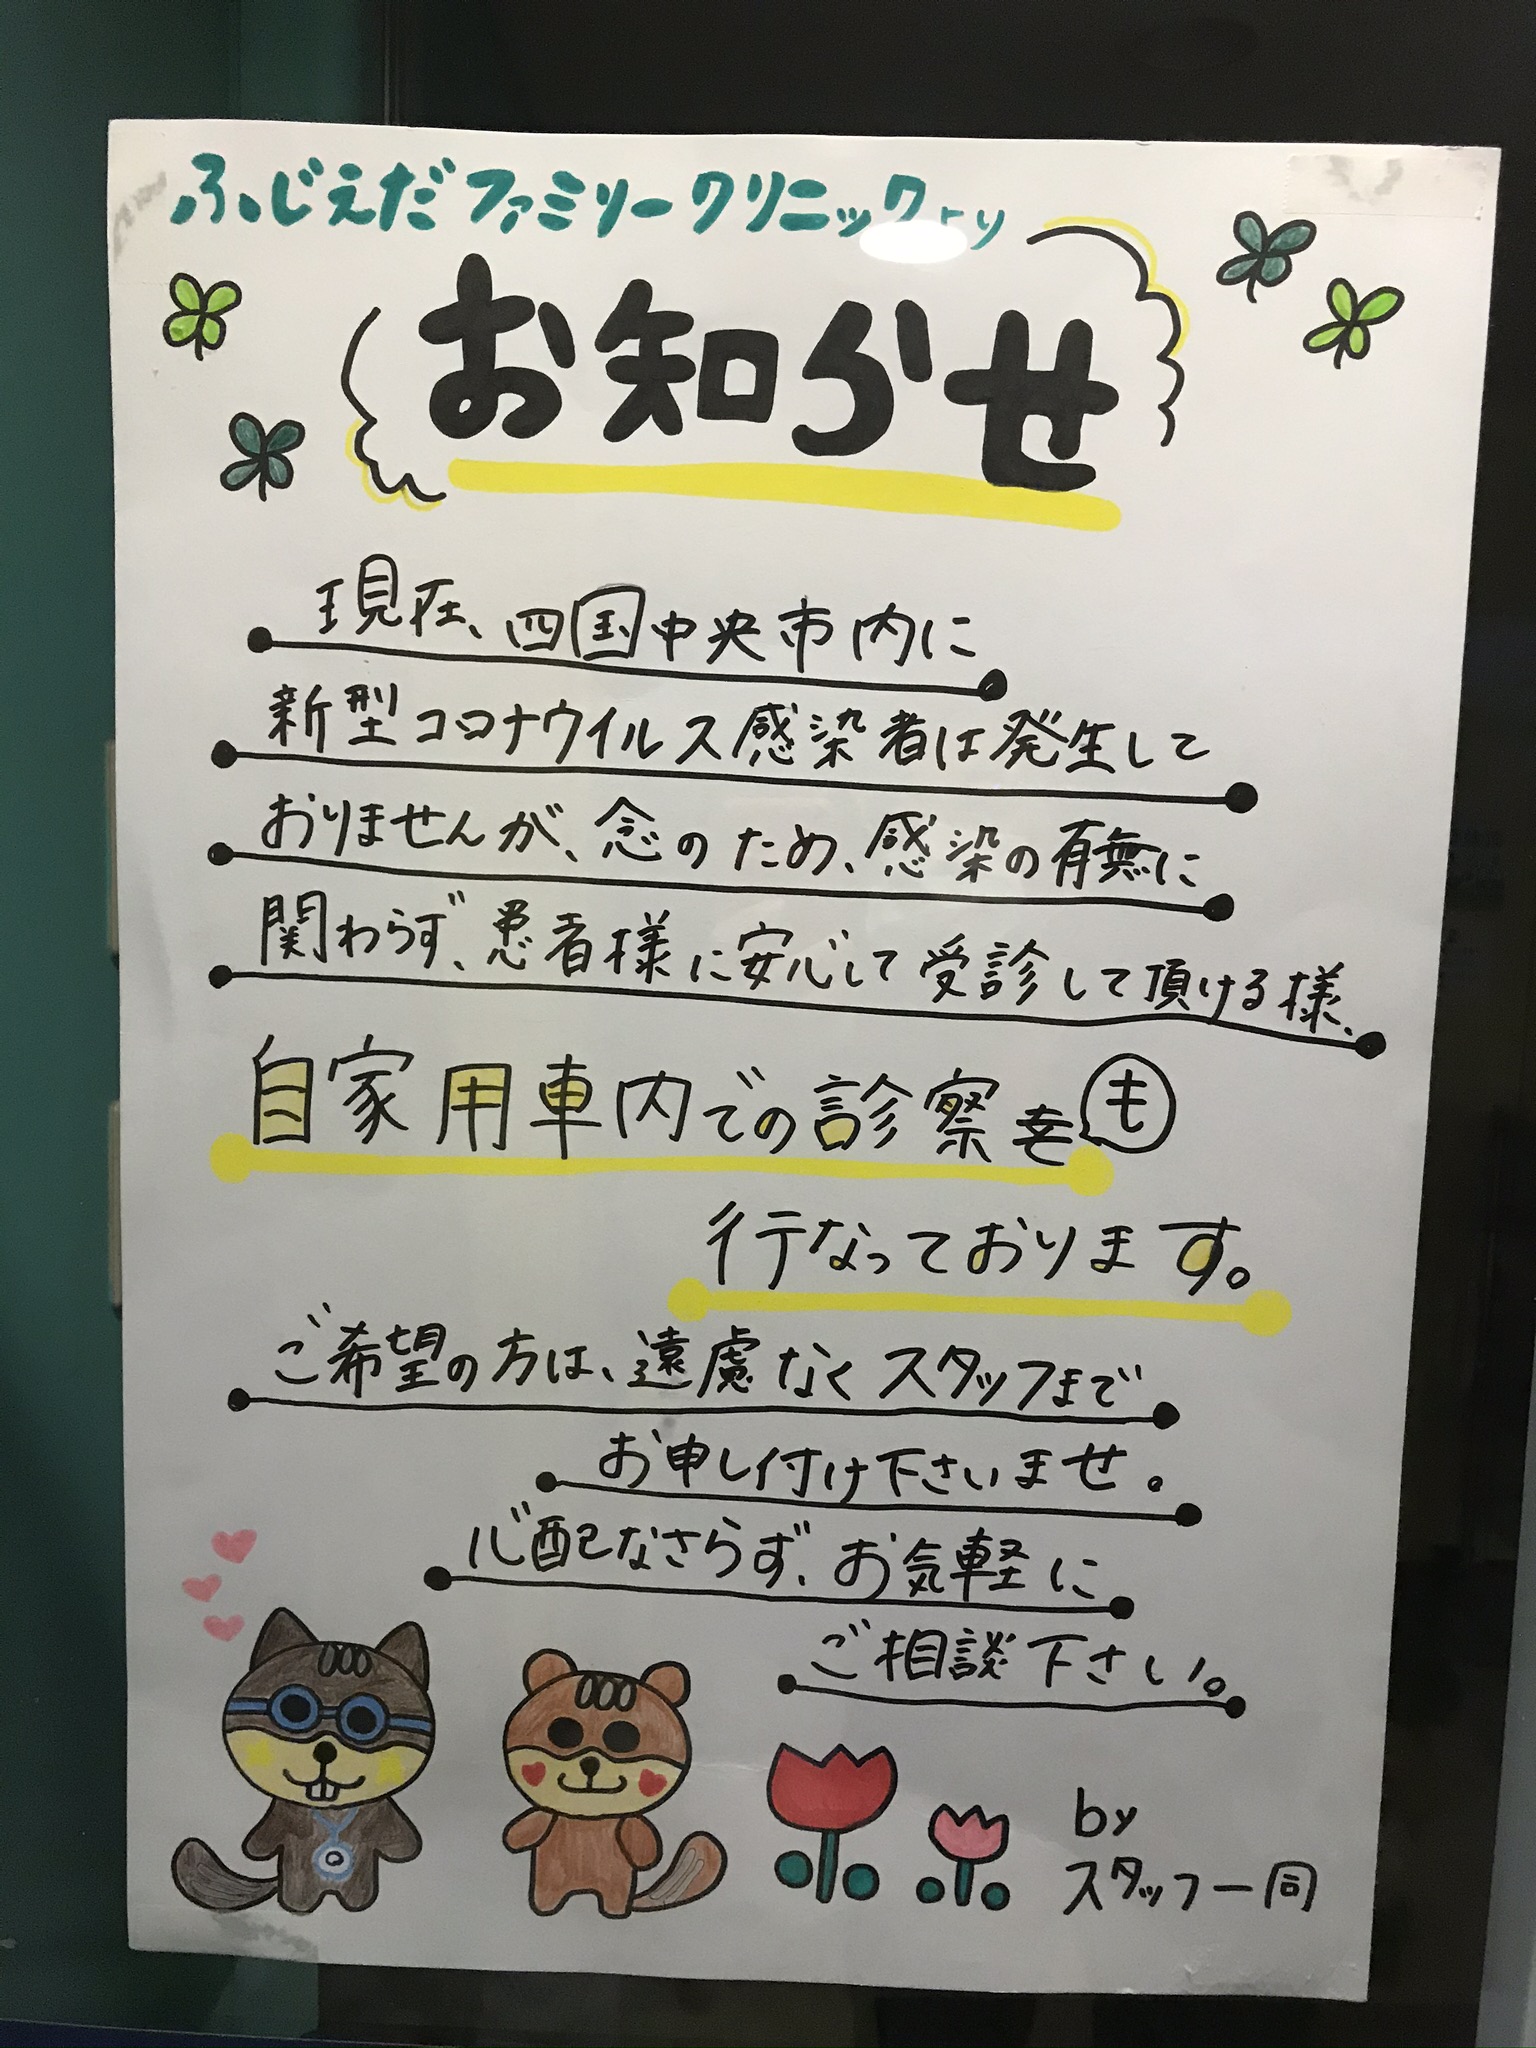 ふじえだファミリークリニックより
お知らせ
現在、四国中央市内に
新型コロナウイルス感染者は発生して
おりませんが、念のため、感染の有無に
関わらず、患者様に安心して受診して頂ける様、
自家用車内での診察をも
行なっております。
ご希望の方は、遠慮なくスタッフまで
お申し付け下さいませ。
心配なさらず、お気軽に
ご相談下さい。
by
スタッフ一同